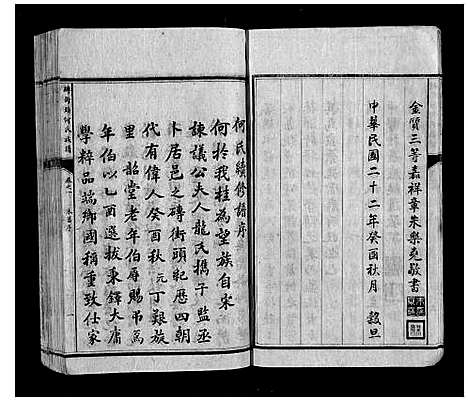 金質三等嘉祥章朱樂堯敬書
中華民國二十二年癸酉秋月 穀旦
何氏續修譜序
何於我桂為望族自宋
諫議公夫人龍氏携子監丞
卜居邑之磚街頭䄵歷四朝
代有偉人癸酉秋元丁艱族
里韶堂老年伯辱賜吊焉
年伯以乙酉選拔秉鐸大庸
學粹品端鄉國稱重致仕家
磚街頭何氏族譜 卷之一 朱首序 一